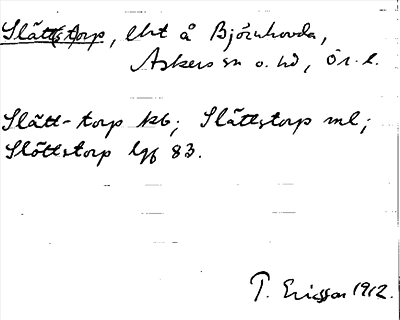 Slättstorp, lht å Björnhovda,
Askers sn o. hd, Ör. l.
Slätt-torp kb; Slättstorp ml;
Slöttstorp lgf 83.
T. Ericsson 1912.